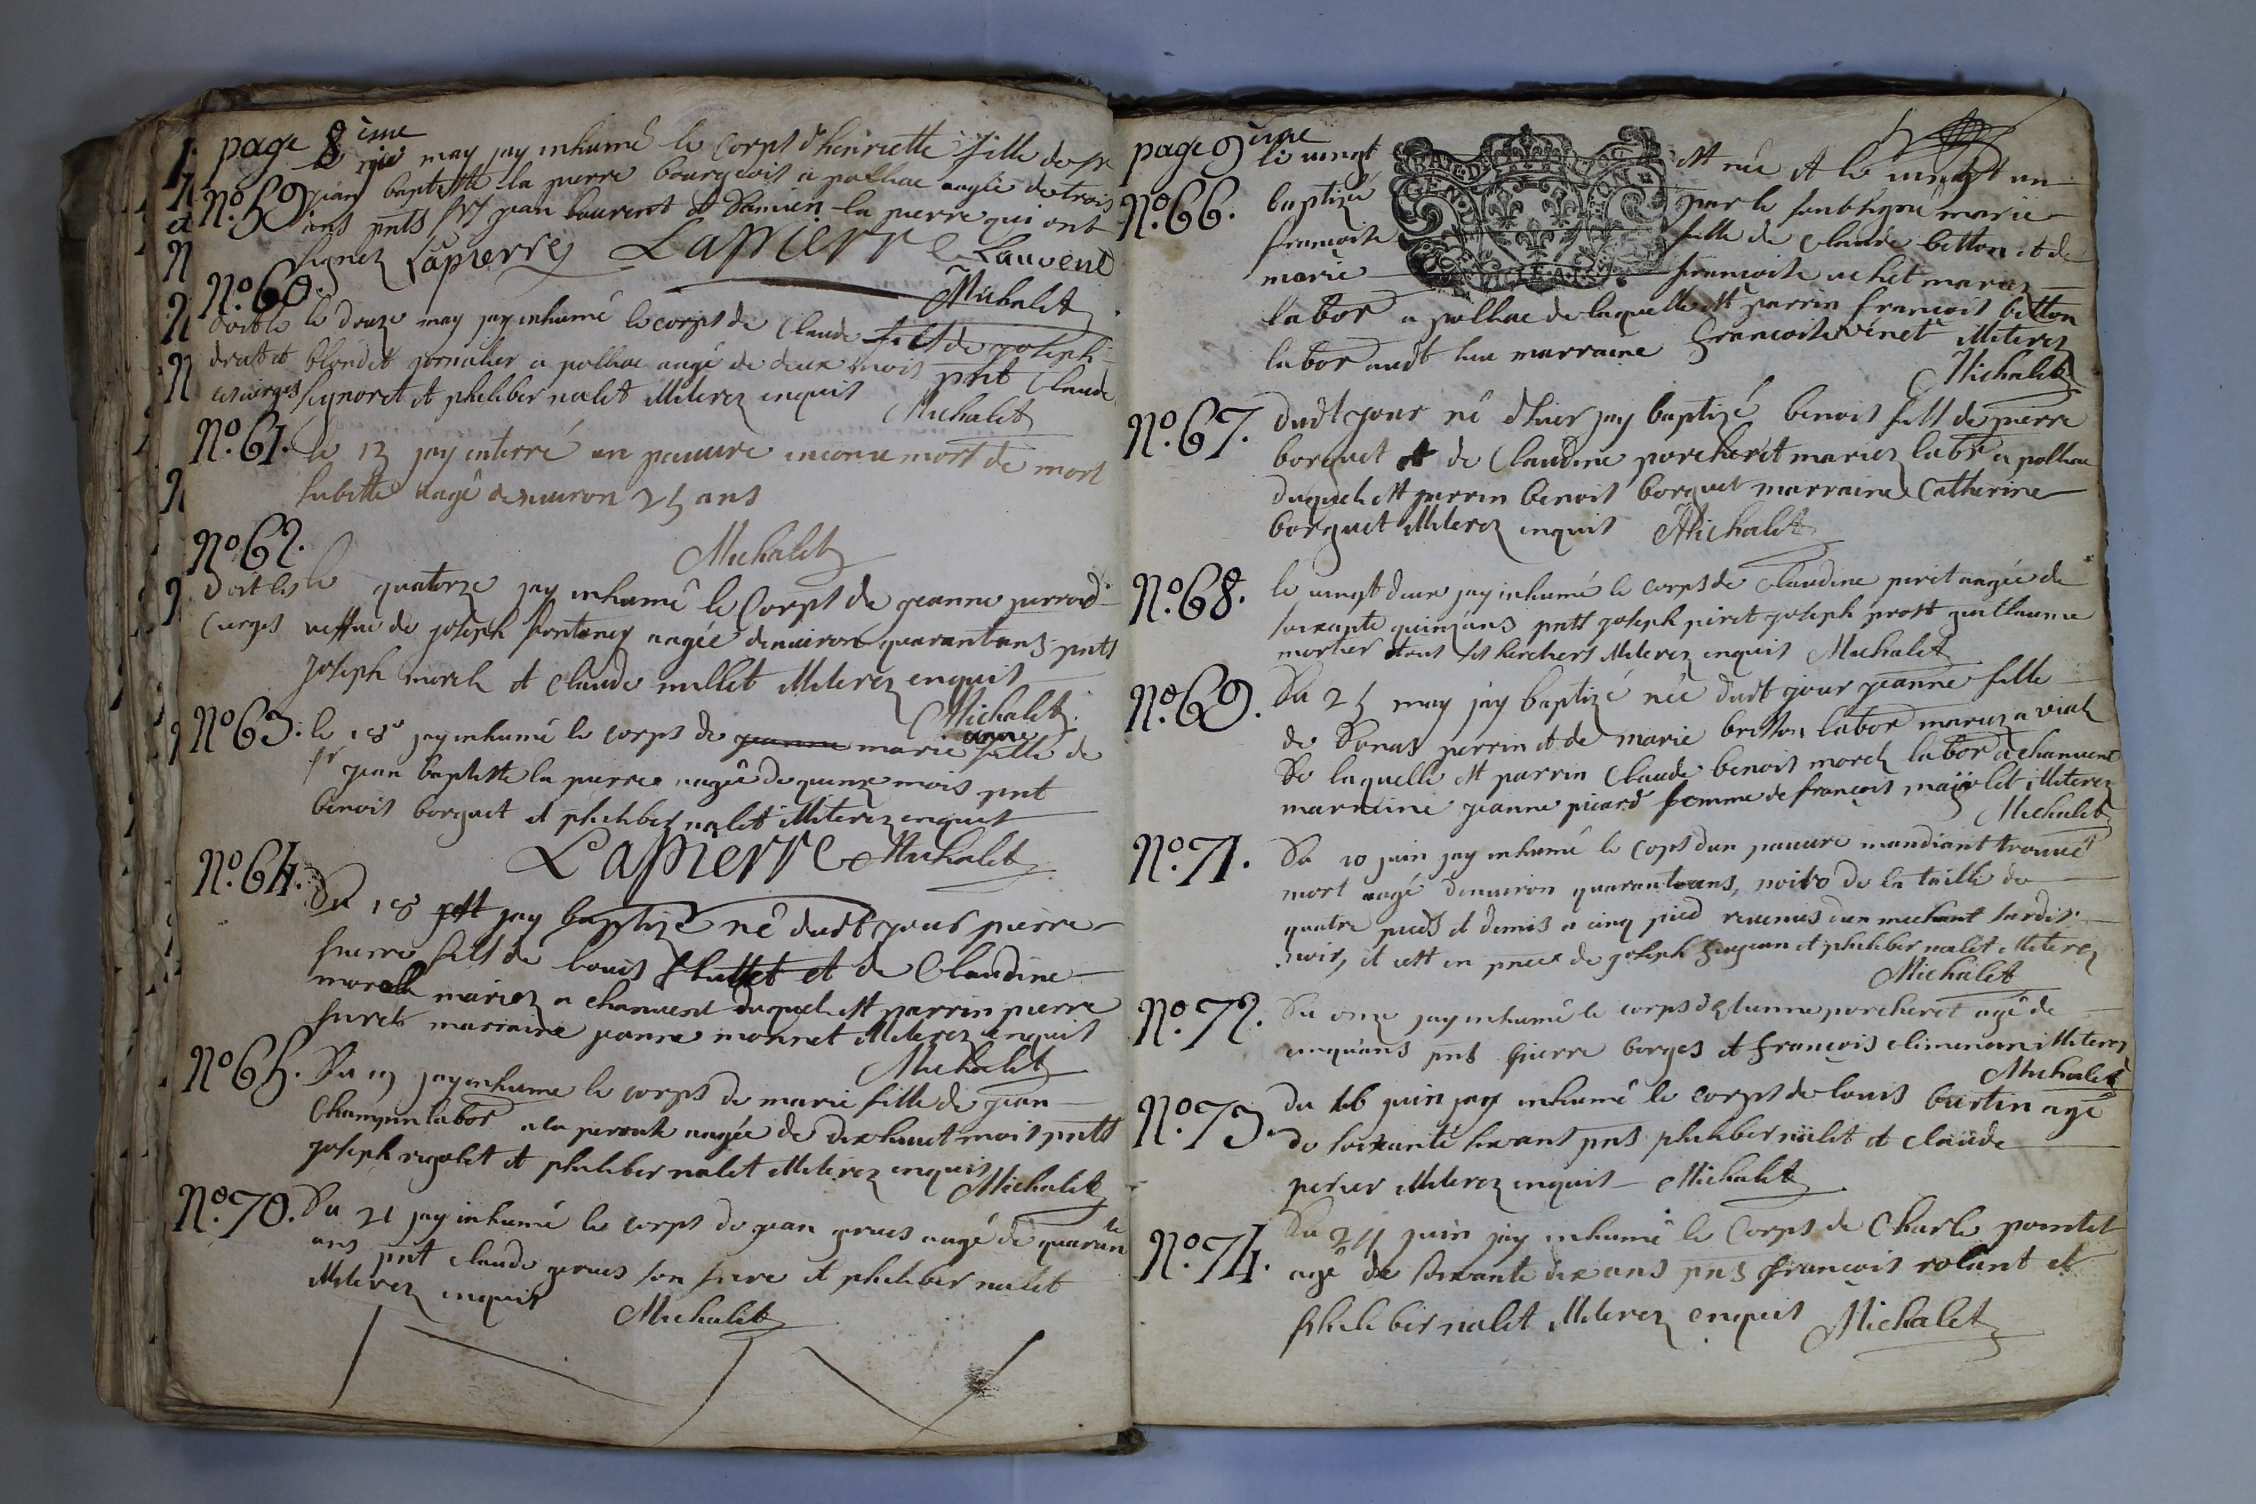 page 8ème
may jay inhumé le Corps d'henriette fille de sr
No. 59 jean baptiste la pierre bourgeois a polliac aagée de trois
ans pnts srs jean laurent et Damien la pierre qui ont
signez Lapierre Lapierre Laurent
Michalet
No. 60.
doit le le douze may jay inhumé le corps de Claude fils de joseph
drat et blondet jornalier a polliac aagé de deux mois pnt Claude
cierges signoret et philiber nalet illiterez enquis
Michalet
No. 61. le 13 jay interré un pauvre inconu mort de mort
subitte aagé denviron 25 ans
No. 62.
Michalet
Doit les le quatorze jay inhumé le Corps de jeanne perrod
Cierges veffue de joseph fontaney aagée denviron quarantans pnts
joseph morel et claude millet illiterez enquis
Michalet
No. 63. le 18 jay inhumé le corps de jeanne marie anne fille de
sr jean baptiste la pierre aagée de quinze mois pnt
benoit borguet et philiber nalet illiterez enquis
Lapierre Michalet
No. 64.
Du 18 jay baptizé né dudt jour pierre
pierre fils de louis et de Claudine
morel mariez a chanvent duquel est parrin pierre
marraine jeanne monnet illiterez enquis
Michalet
No. 65. Du 19 jay inhumé le corps de marie fille de jean
Champin labor a la perouse aagée de dix huuct mois pnts
joseph rigolet et philiber nalet illiterez enquis
Michalet
No. 70. Du 21 jay inhumé le corps de jean gerues aagé de quarante
ans pnt claude gerues son frere et philiber nalet
illiterez enquis Michalet
page 9ème
le vingt est née et le vingt un
No. 66. baptizée par le soubsigné marie
francoise fille de claude bitton et de
marie francoise uchet mariez
labor a polliac de laquelle est parrin francois bitton
labor audt lieu marraine francoise venet illiterez
Michalet
No. 67. dudt jour né dhier jay baptizé benoit fils de pierre
borguet et de Claudine porcheret mariez labr a polliac
duquel est parrin benoit borguet marraine Catherine
borguet illiterez enquis Michalet
No. 68. le vingt deux jay inhumé le corps de Claudine piret aagée de
soixante quinzans pnts joseph piret joseph prost guillaume
mortier illiterez enquis Michalet
No. 69. Du 25 may jay baptizé née dudt jour jeanne fille
de Donas perrin et de marie britton labor mariez a
De laquelle est parrin Claude benoit morel labor a chanvent
marraine jeanne picard femme de françois illiterez
Michalet
No. 71. Du 10 juin jay inhumé le cops dun pauvre mandiant trouvé
mort aagé denviron quarantans, noir de la taille de
quatre pieds et demis a cinq pied
et cest en pnce de joseph et philiber nalet illiterez
Michalet
No. 72. Du onze jay inhumé le corps destienne porcheret agé de
cinquans pns pierre borges et françois illiterez
Michalet
No. 73. du 16 juin jay inhumé le corps de louis burtin agé
de soixante sixans pns philiber nalet et claude
perier illiterez enquis Michalet
No. 74. Du 24 juin jay inhumé le Corps de Charle pointet
agé de soixante dix ans pns françois rolant et
philiber nalet illiterez enquis Michalet